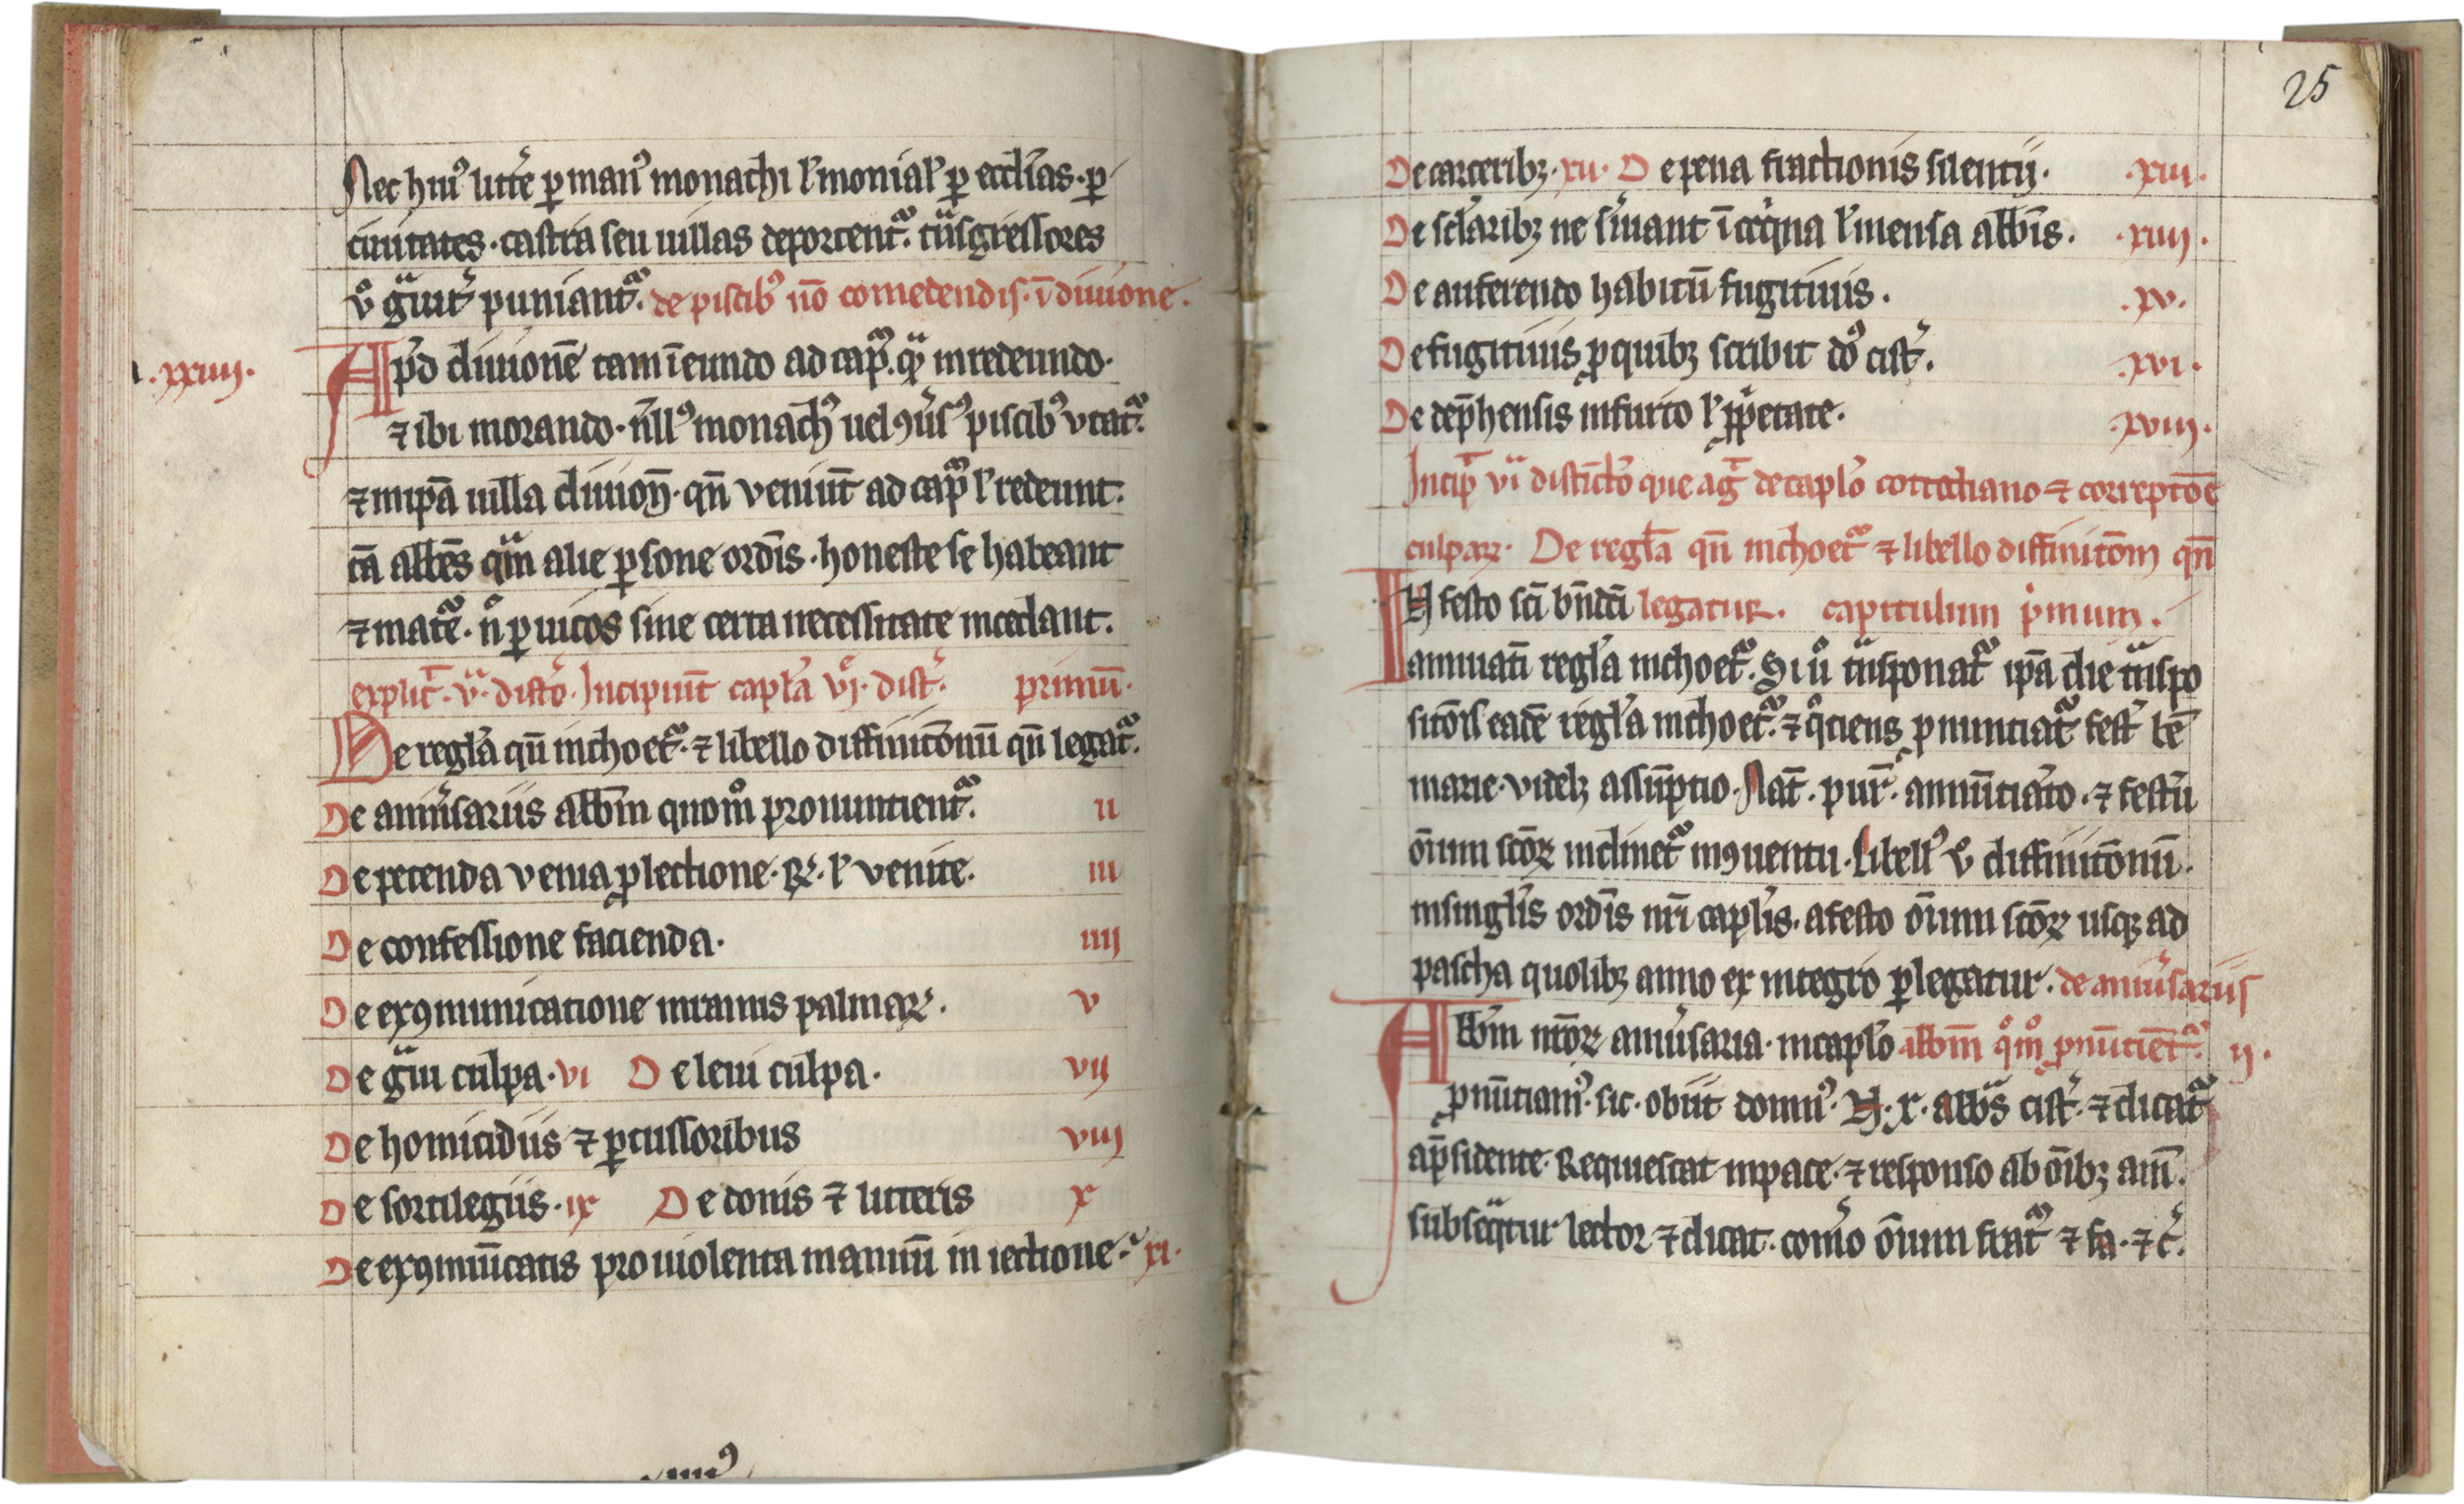 Nec hiu᷒ litt̾e ꝑ man᷒ monachi ł monial̾ ꝑ eccl̾ias · ꝑ
ciuitates · castra seu uillas deportent᷑. t̾nsgressores
v̊ g̾uit̾ puniant᷑. de piscib᷒ nō comedendis · ī diuione.
.xxiiii.
Ap̾d diuionē tam ī eundo ad cap᷑. qͣ in redeundo·
⁊ ibi morando · n̄ll᷒ monach᷒ uel ꝯu̾s᷒ piscib᷒ vtat᷑.
⁊ in ip̄a uilla diuion̄ · qn̄ veniūt ad cap᷑ ł redeunt.
tā abb̄es qͣm alie ꝑsone ord̄is · honeste se habeant
⁊ mat̾e · n̊ ꝑ uicos sine certa necessitate incedant.
explic̄t · vͣ · dist̄o · Incipiūt capl̾a vj̊ · dist̾. primū·
De regl̾a qn̄ inchoet᷑ · ⁊ libello diffinitōnū qn̄ legat᷑.
De anniu̾sariis abb̄m quom̊ pronuntient᷑. ii
De petenda venia ꝓ lectione · R̾ · ł venite. iii
De confessione facienda· iiii
De exꝯmunicatione in ramis palmaꝝ. v
De gͣui culpa · vi De leui culpa. vii
De homicidiis ⁊ ꝑcussoribus viii
De sortilegiis · ix De donis ⁊ litteris x
De exꝯmūicatis pro uiolenta manuū in iectione · xi·
25
De carceribꝫ · xii · De pena fractionis silentij · .xiii.
De scl̾aribꝫ ne s̾uiant ī coq̇na ł mensa abb̄is. .xiiii.
De auferendo habitū fugitiuis . .xv.
De fugitiuis ꝓ quibꝫ scribit do᷒ cist̾. .xvi.
De dep̄hensis in furto ł ꝓp̾etate. .xvii.
Incip̄ viͣ distīct̾o que ag̾t de capl̾o cottidiano ⁊ correptōe
culpaꝝ · De regl̾a qn̄ inchoet᷑ ⁊ libello diffinitōm qn̄
IN festo sc̄i bn̄dc̄i legatur. capitulum p̾mum.
annuati regl̾a inchoet᷑. Si u̾ t̾nsponat᷑ ip̄a die t̾nspo
sitōis eadē regl̾a inchoet᷑. ⁊ q̊ciens ꝓnunciat᷑ fest̾ bē
marie · videlꝫ assūptio · Nat̄. pur̾ · annūciat̾o · ⁊ festū
ōium sc̄oꝝ inclinet᷑ in ꝯuentu · Libell᷒ v̊ diffinitōnū.
in singl̾is ord̄is nr̄i capl̾is · a festo ōium sc̄oꝝ usqꝫ ad
pascha quolibꝫ anno ex integro ꝑlegatur · de anniu̾sariis
Abb̄m nr̄oꝝ anniu̾saria · in capl̾o abb̄m q̊m̊ ꝓnūcient᷑. ij.
ꝓnūciam᷒ · sic · obiit domn᷒ · N · x · abb̄s cist̾. ⁊ dicat᷑
a p̄sidente · Requiescat in pace · ⁊ responso ab ōibꝫ am̄.
subseqͣtur lector ⁊ dicat · com̾o ōium frat᷑ ⁊ fa · ⁊ c̾.